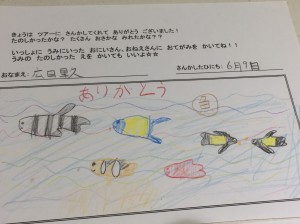 きょうは ツアーに さんかしてくれて ありがとう ございました！
たのしかったかな？ たくさん おさかな みれたかな？？
いっしょに うみにいった おにいさん、おねえさんに おてがみを かいてね！！
うみの たのしかった えを かいても いいよ☆☆
おなまえ: 広田 里久
さんかしたひにち: 6月9日
ありがとう